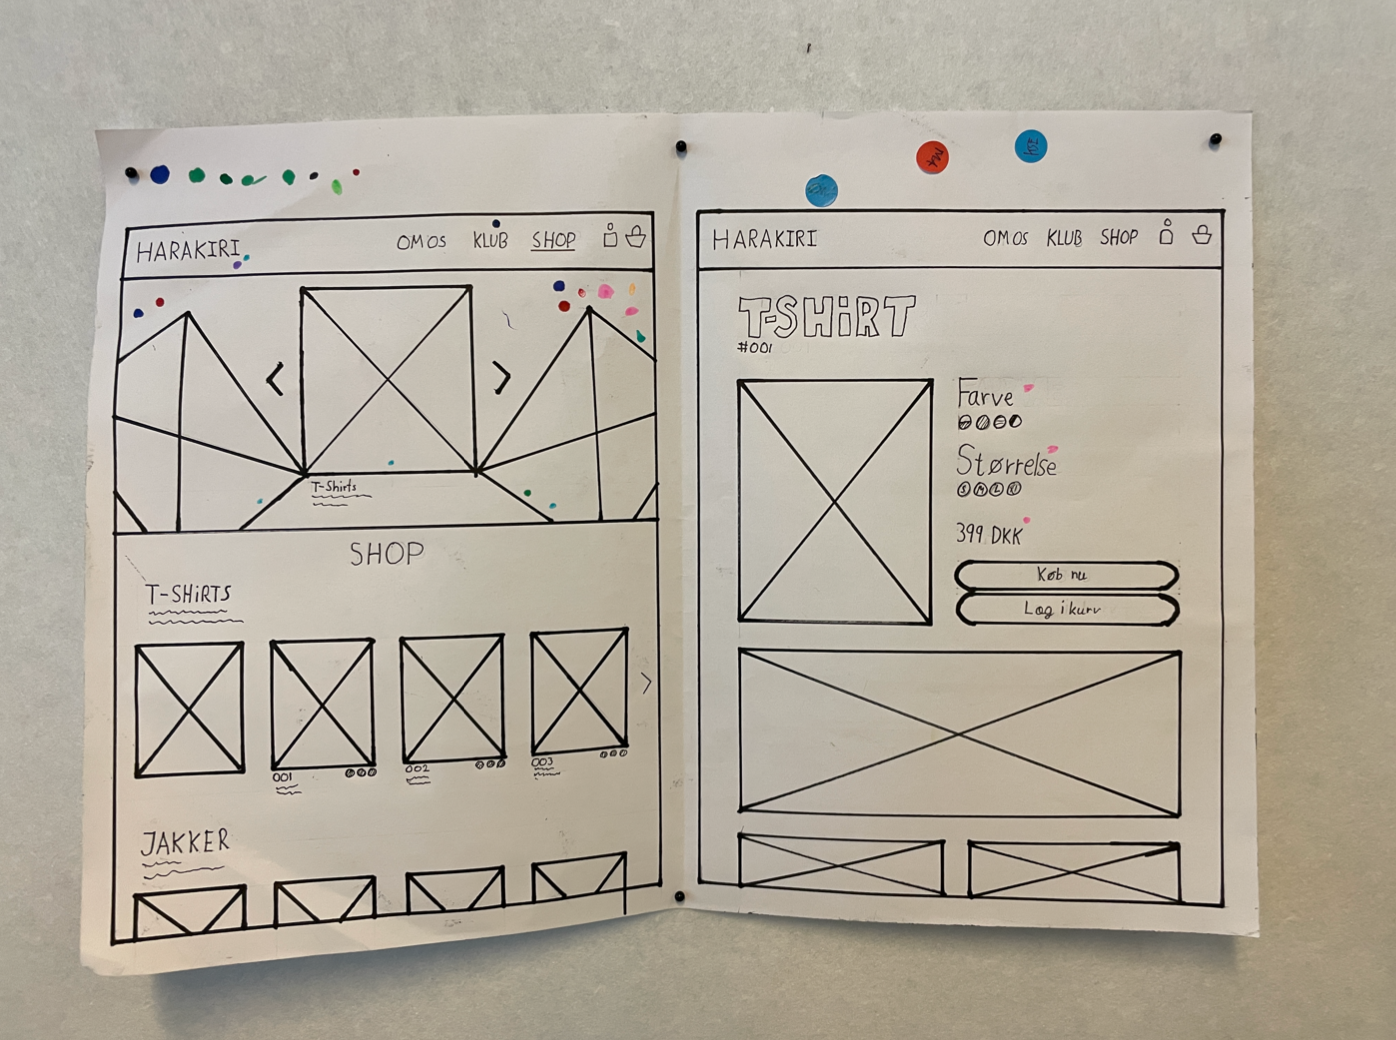 HARAKIRI
OM OS KLUB SHOP
T-Shirts
SHOP
T-SHiRTS
001
002
003
JAKKER
HARAKIRI
OM OS KLUB SHOP
T-SHiRT
#001
Farve
Størrelse
S M L
399 DKK
Køb nu
Læg i kurv